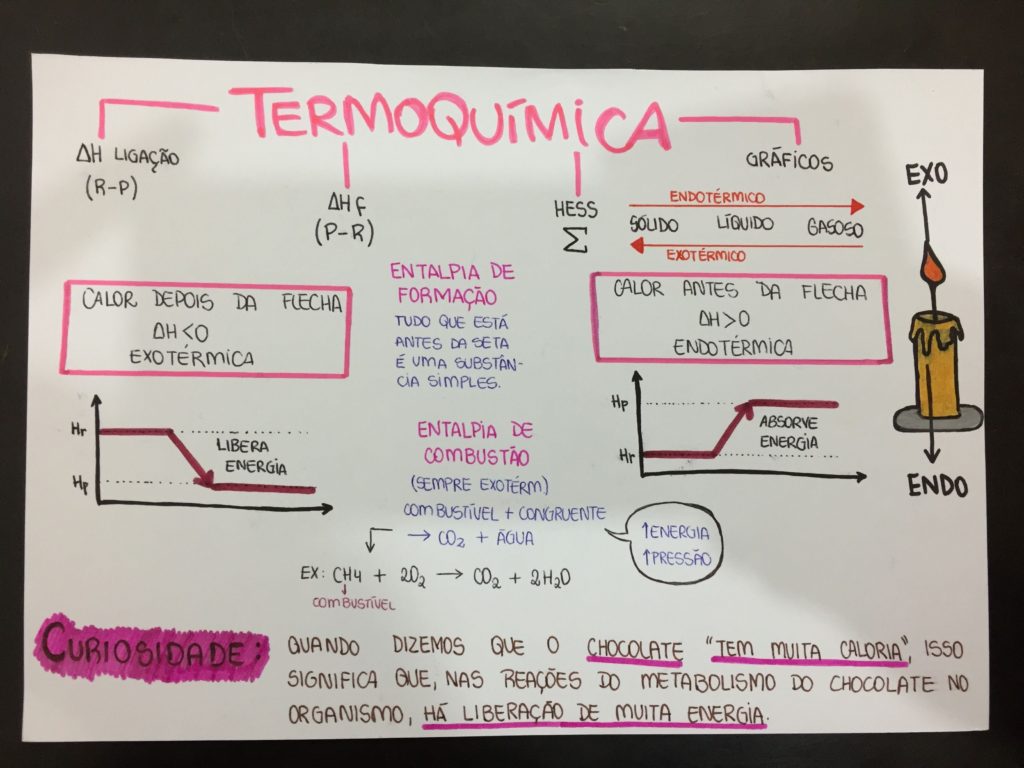 TERMOQUÍMICA
ΔH LIGAÇÃO
(R-P)
ΔHf
(P-R)
HESS
Σ
GRÁFICOS
ENDOTÉRMICO
SÓLIDO LÍQUIDO GASOSO
EXOTÉRMICO
EXO
ENDO
CALOR DEPOIS DA FLECHA
ΔH<0
EXOTÉRMICA
Hr
LIBERA
ENERGIA
Hp
ENTALPIA DE
FORMAÇÃO
TUDO QUE ESTÁ
ANTES DA SETA
É UMA SUBSTÂN-
CIA SIMPLES.
CALOR ANTES DA FLECHA
ΔH>0
ENDOTÉRMICA
Hp
ABSORVE
ENERGIA
Hr
ENTALPIA DE
COMBUSTÃO
(SEMPRE EXOTÉRM)
COMBUSTÍVEL + CONGRUENTE
→ CO₂ + ÁGUA
↑ENERGIA
↑PRESSÃO
EX: CH4 + 2O₂ → CO₂ + 2H₂O
COMBUSTÍVEL
CURIOSIDADE:
QUANDO DIZEMOS QUE O CHOCOLATE "TEM MUITA CALORIA", ISSO
SIGNIFICA QUE, NAS REAÇÕES DO METABOLISMO DO CHOCOLATE NO
ORGANISMO, HÁ LIBERAÇÃO DE MUITA ENERGIA.